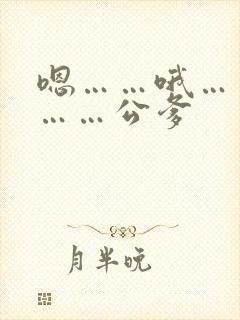 嗯……哦…
……公爹
月半晚